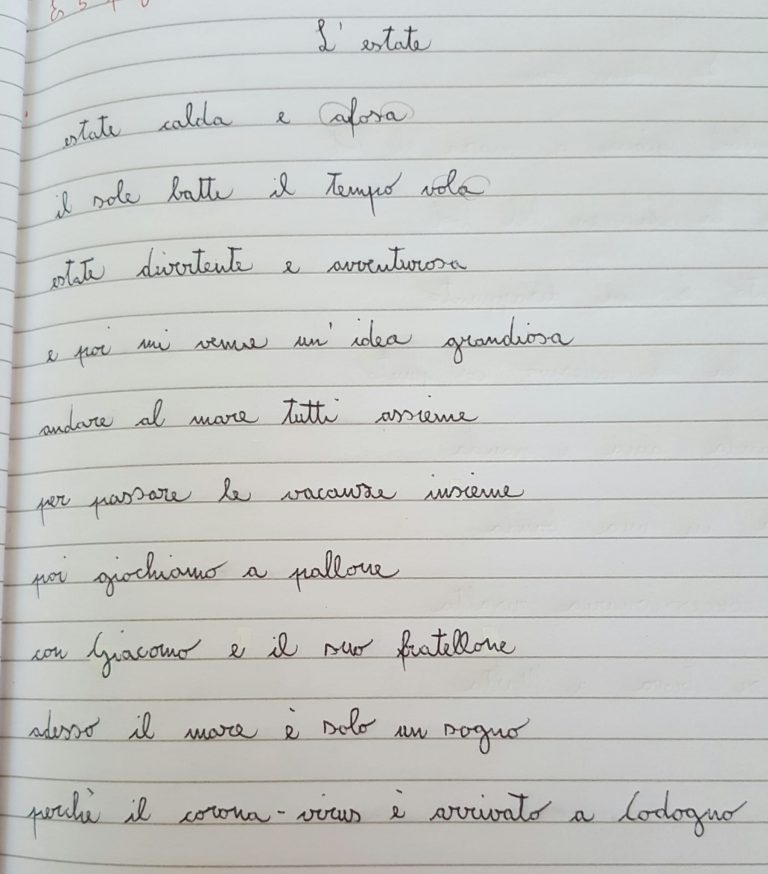 L' estate
estate calda e afosa
il sole batte il tempo vola
estate divertente e avventurosa
e poi mi venne un' idea grandiosa
andare al mare tutti assieme
per passare le vacanze insieme
poi giochiamo a pallone
con Giacomo e il suo fratellone
adesso il mare è solo un sogno
perchè il corona-virus è arrivato a Codogno